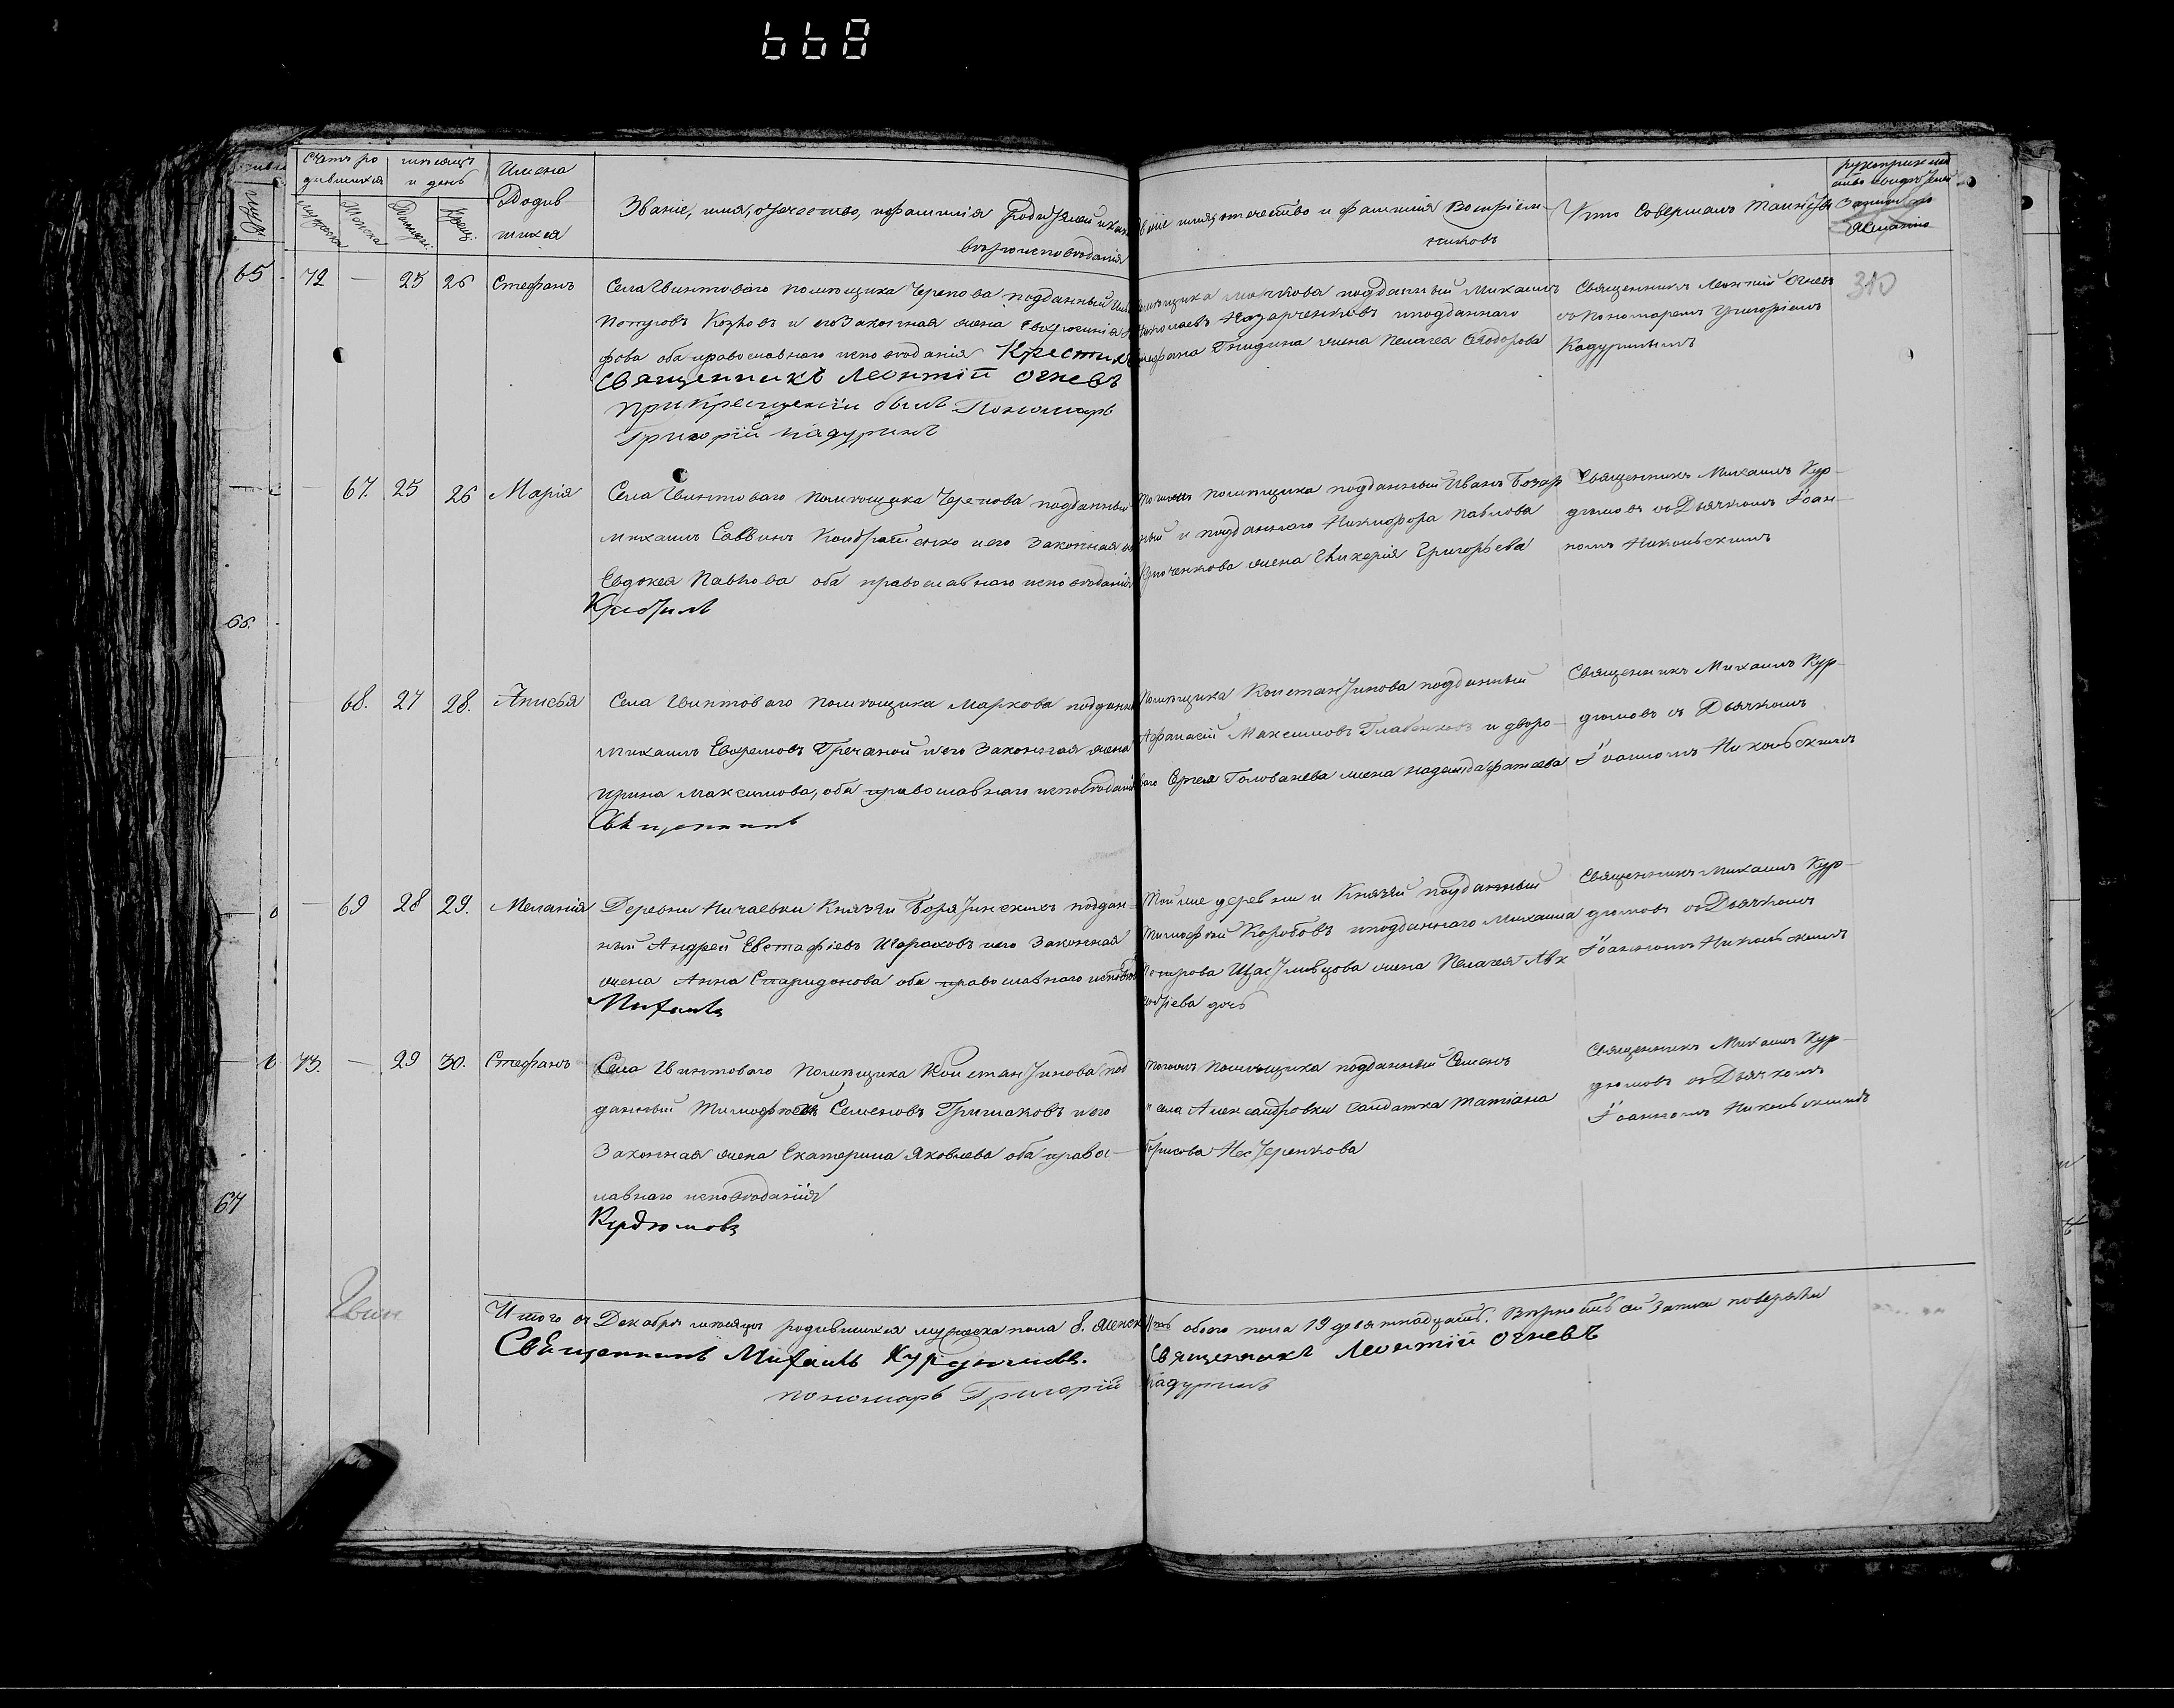 668
Счетъ ро
дившихся
мѣсяцъ
и день
Имена
Родив
шихся
Званіе, имя, отчество, и фамилія Родителей и какого
вѣроисповѣданія
имя, отчество и фамилія Воспріем-
никовъ
Кто Совершалъ Таинство
Рукоприклад
ство свидѣтелей
Записи по
желанію
310
65 72 — 25 26 Стефанъ
Села Гвинтоваго помѣщика Черепова подданный
Козловъ и его Законная жена Евфросинія
оба православнаго исповѣданія Крестилъ
Священникъ Леонтій Огневъ
при Крещеніи былъ Пономарь
Григорій Кадуринъ
помѣщика подданный Михаилъ
Николаевъ Назарченковъ и подданнаго
Гнидина жена Пелагея Ѳеодорова
Священникъ Леонтій Огневъ
съ Пономаремъ Григоріемъ
Кадуринымъ
— 67. 25 26 Марія
Села Гвинтоваго помѣщика Черепова подданный
Михаилъ Саввинъ Кондратенко и его Законная
Евдокея Павлова оба православнаго исповѣданія
Крестилъ
Тогожъ помѣщика подданный Иванъ Бозар
ный и подданнаго Никифора Павлова
жена Гликерія Григорьева
Священникъ Михаилъ Кур-
дюмовъ со Дьячкомъ Іоан-
номъ Никольскимъ
66.
— 68. 27 28. Анисья
Села Гвинтоваго помѣщика Маркова подданный
Михаилъ Евфремовъ Гречаной и его Законная жена
Ирина Максимова, оба православнаго исповѣданія
Священникъ
Помѣщика Константинова подданный
Афанасій Максимовъ и дворо-
ваго Сергея Голованева жена Надежда
Священникъ Михаилъ Кур-
дюмовъ съ Дьячкомъ
Іоанномъ Никольскимъ
— 69 28 29. Меланія
Деревни Ничаевки Князей Борятинскихъ поддан-
ный Андрей Евстафіевъ Шараховъ и его Законная
жена Анна Спиридонова оба православнаго исповѣд
Михаилъ
Той же деревни и Князей подданный
Тимофѣй Коробовъ и подданнаго Михаила
Петрова Щастливцова жена Пелагея
дочь
Священникъ Михаилъ Кур-
дюмовъ со Дьячкомъ
Іоанномъ Никольскимъ
73. — 29 30. Стефанъ
Села Гвинтоваго Помѣщика Константинова под
данный Тимофѣй Семеновъ Гришаковъ и его
Законная жена Екатерина Яковлева оба право-
славнаго исповѣданія
Курдюмовъ
Тогожъ Помѣщика подданный Семенъ
и села Александровки салдатка Татіана
Борисова Нестеренкова
Священникъ Михаилъ Кур-
дюмовъ со Дьячкомъ
Іоанномъ Никольскимъ
67
Гвин
Итого въ Декабрѣ мѣсяцѣ родившихся мужеска пола 8. женска обоего пола 19 девятнадцать. Вѣрность сей Записи повѣряли
Священникъ Михаилъ Курдюмовъ. Священникъ Леонтій Огневъ
пономарь Григорій Кадуринъ